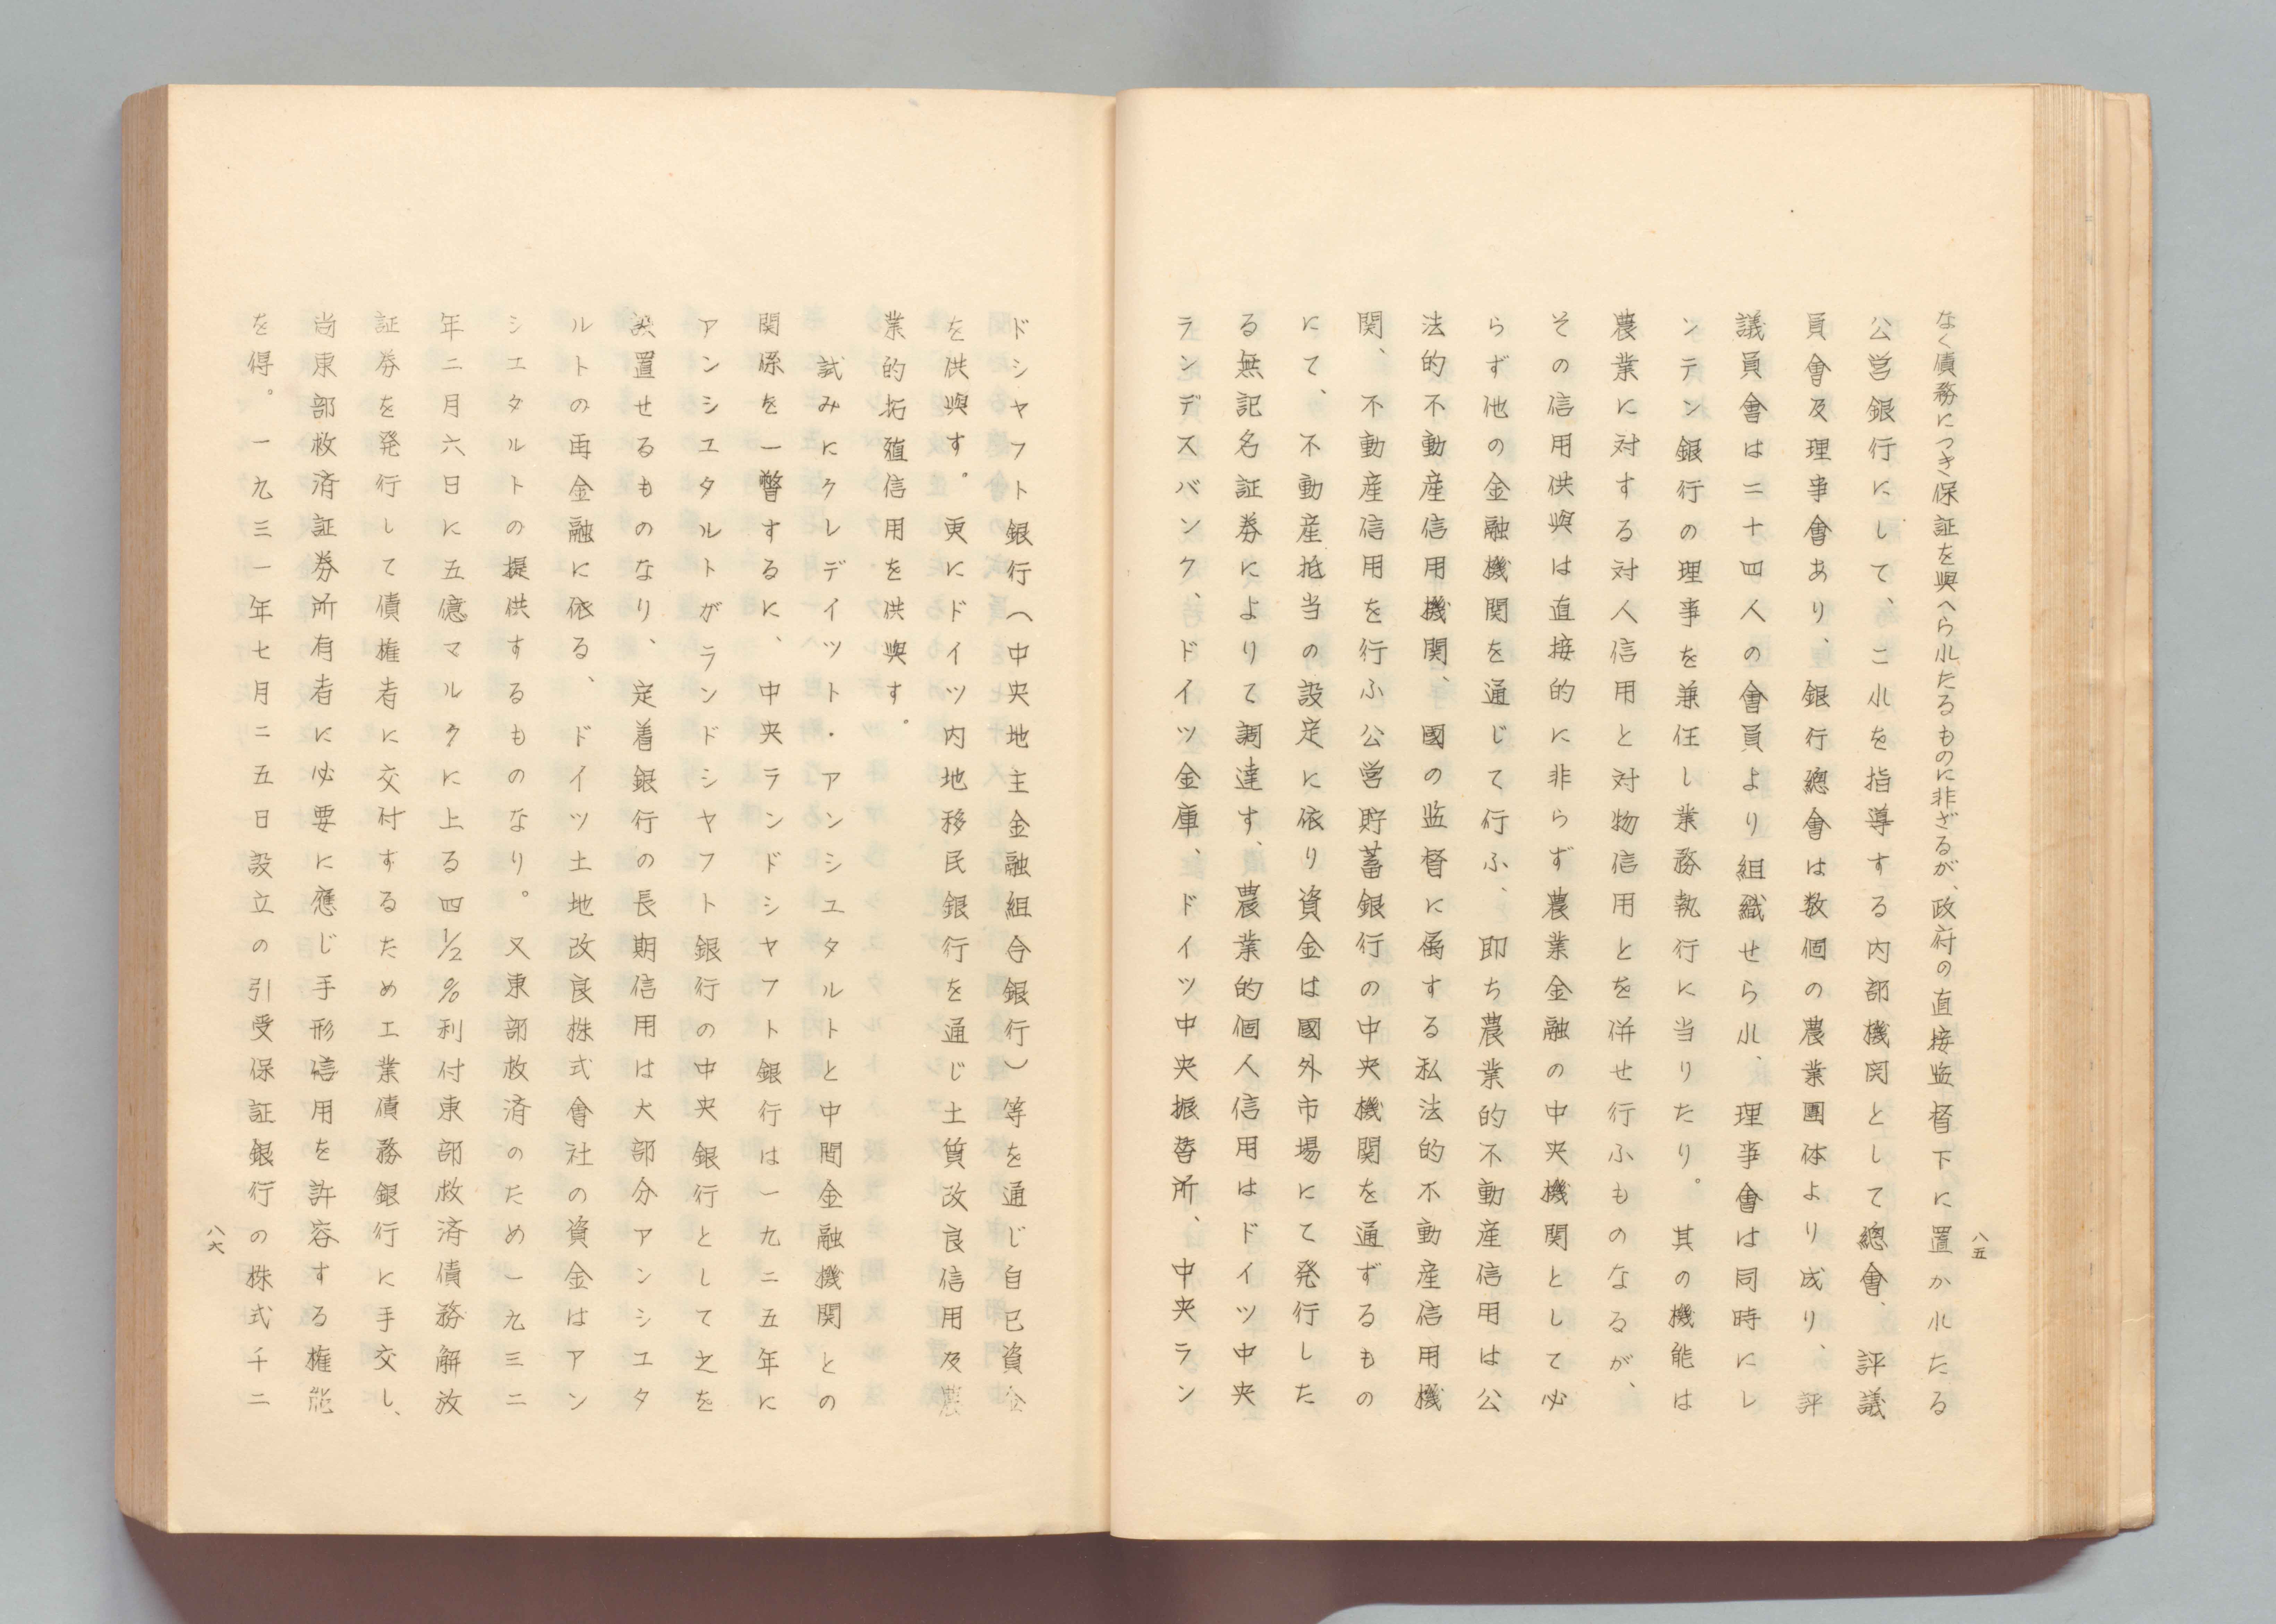 八五
なく債務につき保証を與へられたるものに非ざるが、政府の直接監督下に置かれたる
公営銀行にして、これを指導する内部機関として總會、評議
員會及理事會あり、銀行總會は数個の農業團体より成り、評
議員會は二十四人の會員より組織せられ、理事會は同時にレ
ンテン銀行の理事を兼任し業務執行に当りたり。其の機能は
農業に対する対人信用と対物信用とを併せ行ふものなるが、
その信用供與は直接的に非らず農業金融の中央機関として必
らず他の金融機関を通じて行ふ、即ち農業的不動産信用は公
法的不動産信用機関、國の監督に属する私法的不動産信用機
関、不動産信用を行ふ公営貯蓄銀行の中央機関を通ずるもの
にて、不動産抵当の設定に依り資金は國外市場にて発行した
る無記名証券によりて調達す、農業的個人信用はドイツ中央
ランデスバンク、ドイツ金庫、ドイツ中央振替所、中央ラン
ドシヤフト銀行（中央地主金融組合銀行）等を通じ自己資金
を供與す。更にドイツ内地移民銀行を通じ土質改良信用及農
業的拓殖信用を供與す。
試みにクレデイツト・アンシユタルトと中間金融機関との
関係を一瞥するに、中央ランドシヤフト銀行は一九二五年に
アンシユタルトがランドシヤフト銀行の中央銀行として之を
設置せるものなり、定着銀行の長期信用は大部分アンシユタ
ルトの再金融に依る、ドイツ土地改良株式會社の資金はアン
シユタルトの提供するものなり。又東部救済のため一九三二
年二月六日に五億マルクに上る四½%利付東部救済債務解放
証券を発行して債権者に交付するため工業債務銀行に手交し、
尚東部救済証券所有者に必要に應じ手形信用を許容する権能
を得。一九三一年七月二五日設立の引受保証銀行の株式千二
八六